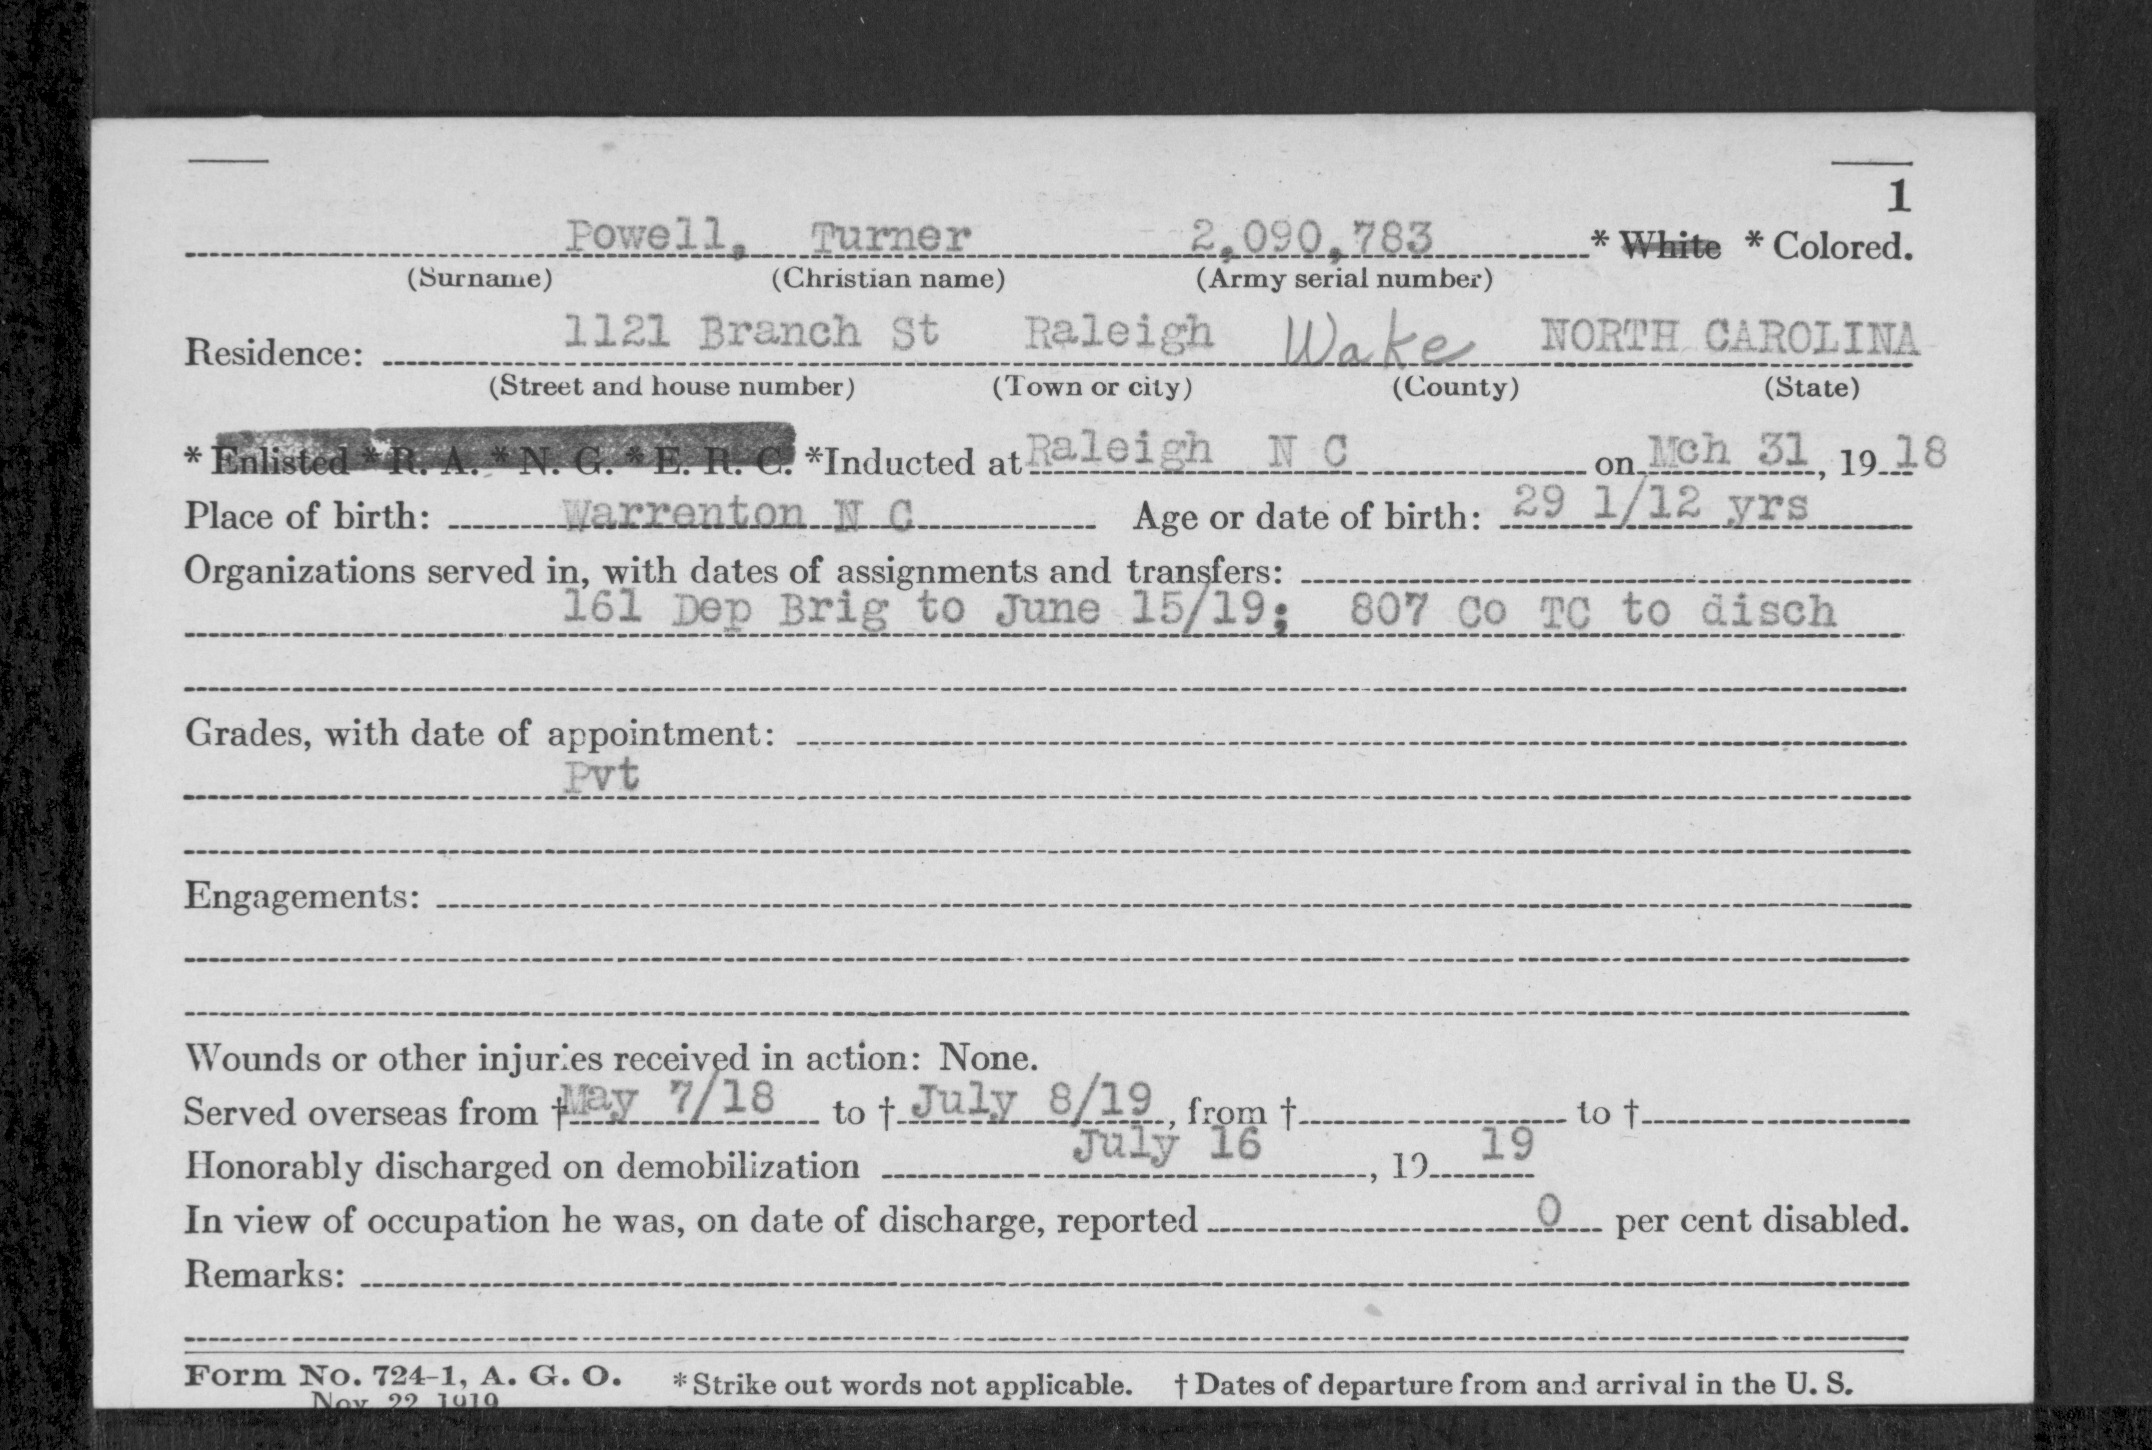 1
Powell, Turner 2,090,783 * White * Colored.
(Surname) (Christian name) (Army serial number)
Residence: 1121 Branch St Raleigh Wake NORTH CAROLINA
(Street and house number) (Town or city) (County) (State)
* Enlisted * R. A. * N. G. * E. R. C. *Inducted at Raleigh N C on Mch 31, 1918
Place of birth: Warrenton N C Age or date of birth: 29 1/12 yrs
Organizations served in, with dates of assignments and transfers:
161 Dep Brig to June 15/19; 807 Co TC to disch
Grades, with date of appointment:
Pvt
Engagements:
Wounds or other injuries received in action: None.
Served overseas from † May 7/18 to † July 8/19, from † to †
Honorably discharged on demobilization July 16, 19 19
In view of occupation he was, on date of discharge, reported 0 per cent disabled.
Remarks:
Form No. 724-1, A. G. O. * Strike out words not applicable. † Dates of departure from and arrival in the U. S.
Nov. 22, 1919